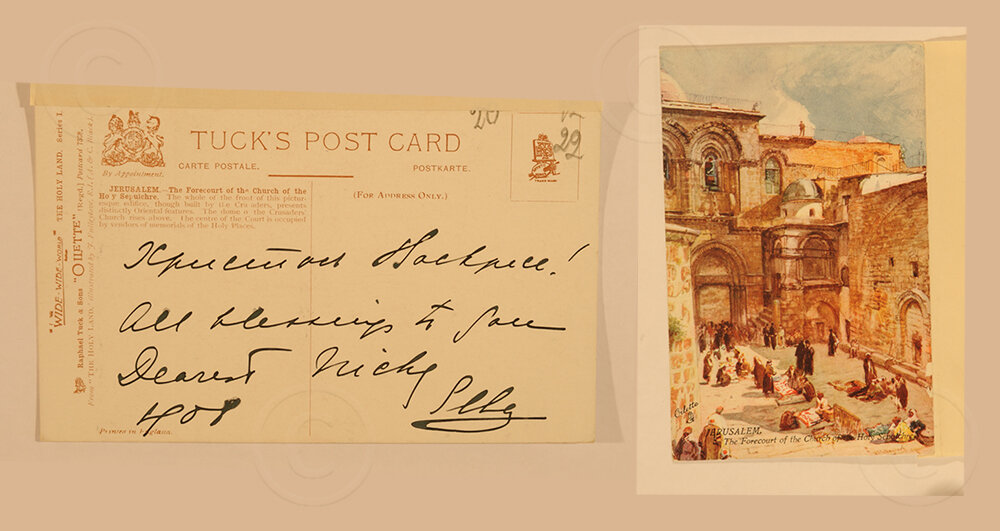 "WIDE-WIDE-WORLD" THE HOLY LAND. Series I.
Raphael Tuck & Sons "OILETTE" [Regd.] Postcard
From "THE HOLY LAND," illustrated by J. Fulleylove, R.I. (A. & C. Black).
By Appointment.
TUCK'S POST CARD
CARTE POSTALE. POSTKARTE.
22
TRADE MARK
JERUSALEM.—The Forecourt of the Church of the
Holy Sepulchre. The whole of the front of this pictur-
esque edifice, though built by the Crusaders, presents
distinctly Oriental features. The dome of the Crusaders'
Church rises above. The centre of the Court is occupied
by vendors of memorials of the Holy Places.
(FOR ADDRESS ONLY.)
Христосъ Воскресе!
All blessings to you
Dearest Nicky
1908 Ella
Printed in England.
Oilette
JERUSALEM.
The Forecourt of the Church of the Holy Sepulchre.